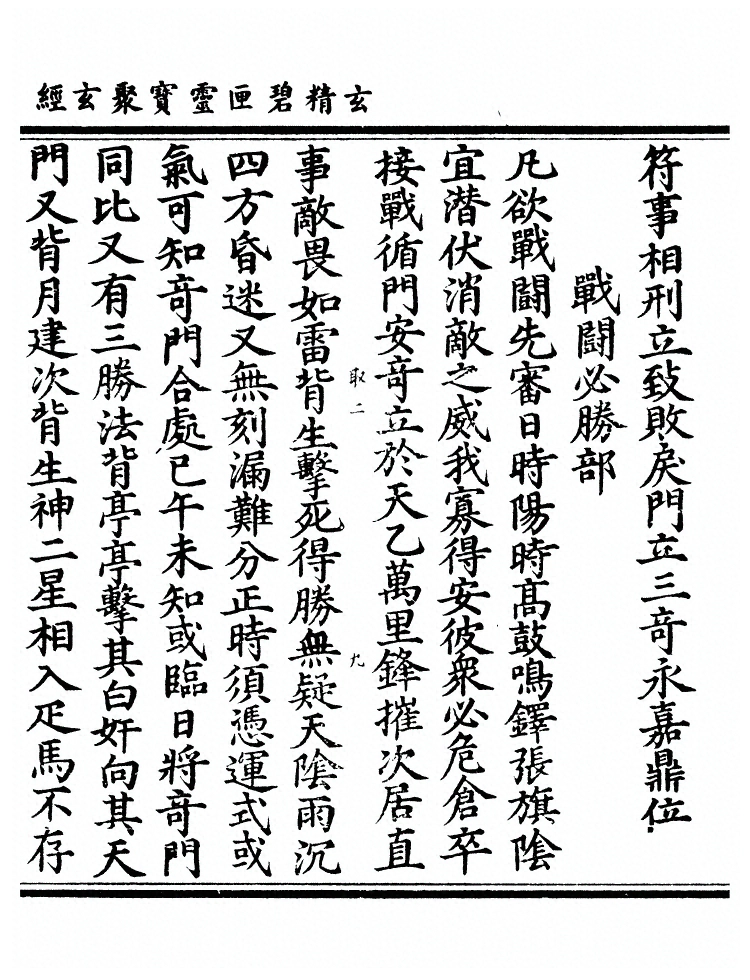 玄精碧匣靈寶聚玄經
符事相刑立致敗戾門立三竒永嘉鼎位
戰闘必勝部
凡欲戰闘先審日時陽時髙鼓鳴鐸張旗陰
宜潜伏消敵之威我寡得安彼衆必危倉卒
接戰循門安竒立於天乙萬里鋒摧次居直
取二 九
事敵畏如雷背生擊死得勝無疑天陰雨沉
四方昏迷又無刻漏難分正時須憑運式或
氣可知竒門合處已午未知或臨日將竒門
同比又有三勝法背亭亭擊其白奸向其天
門又背月建次背生神二星相入疋馬不存